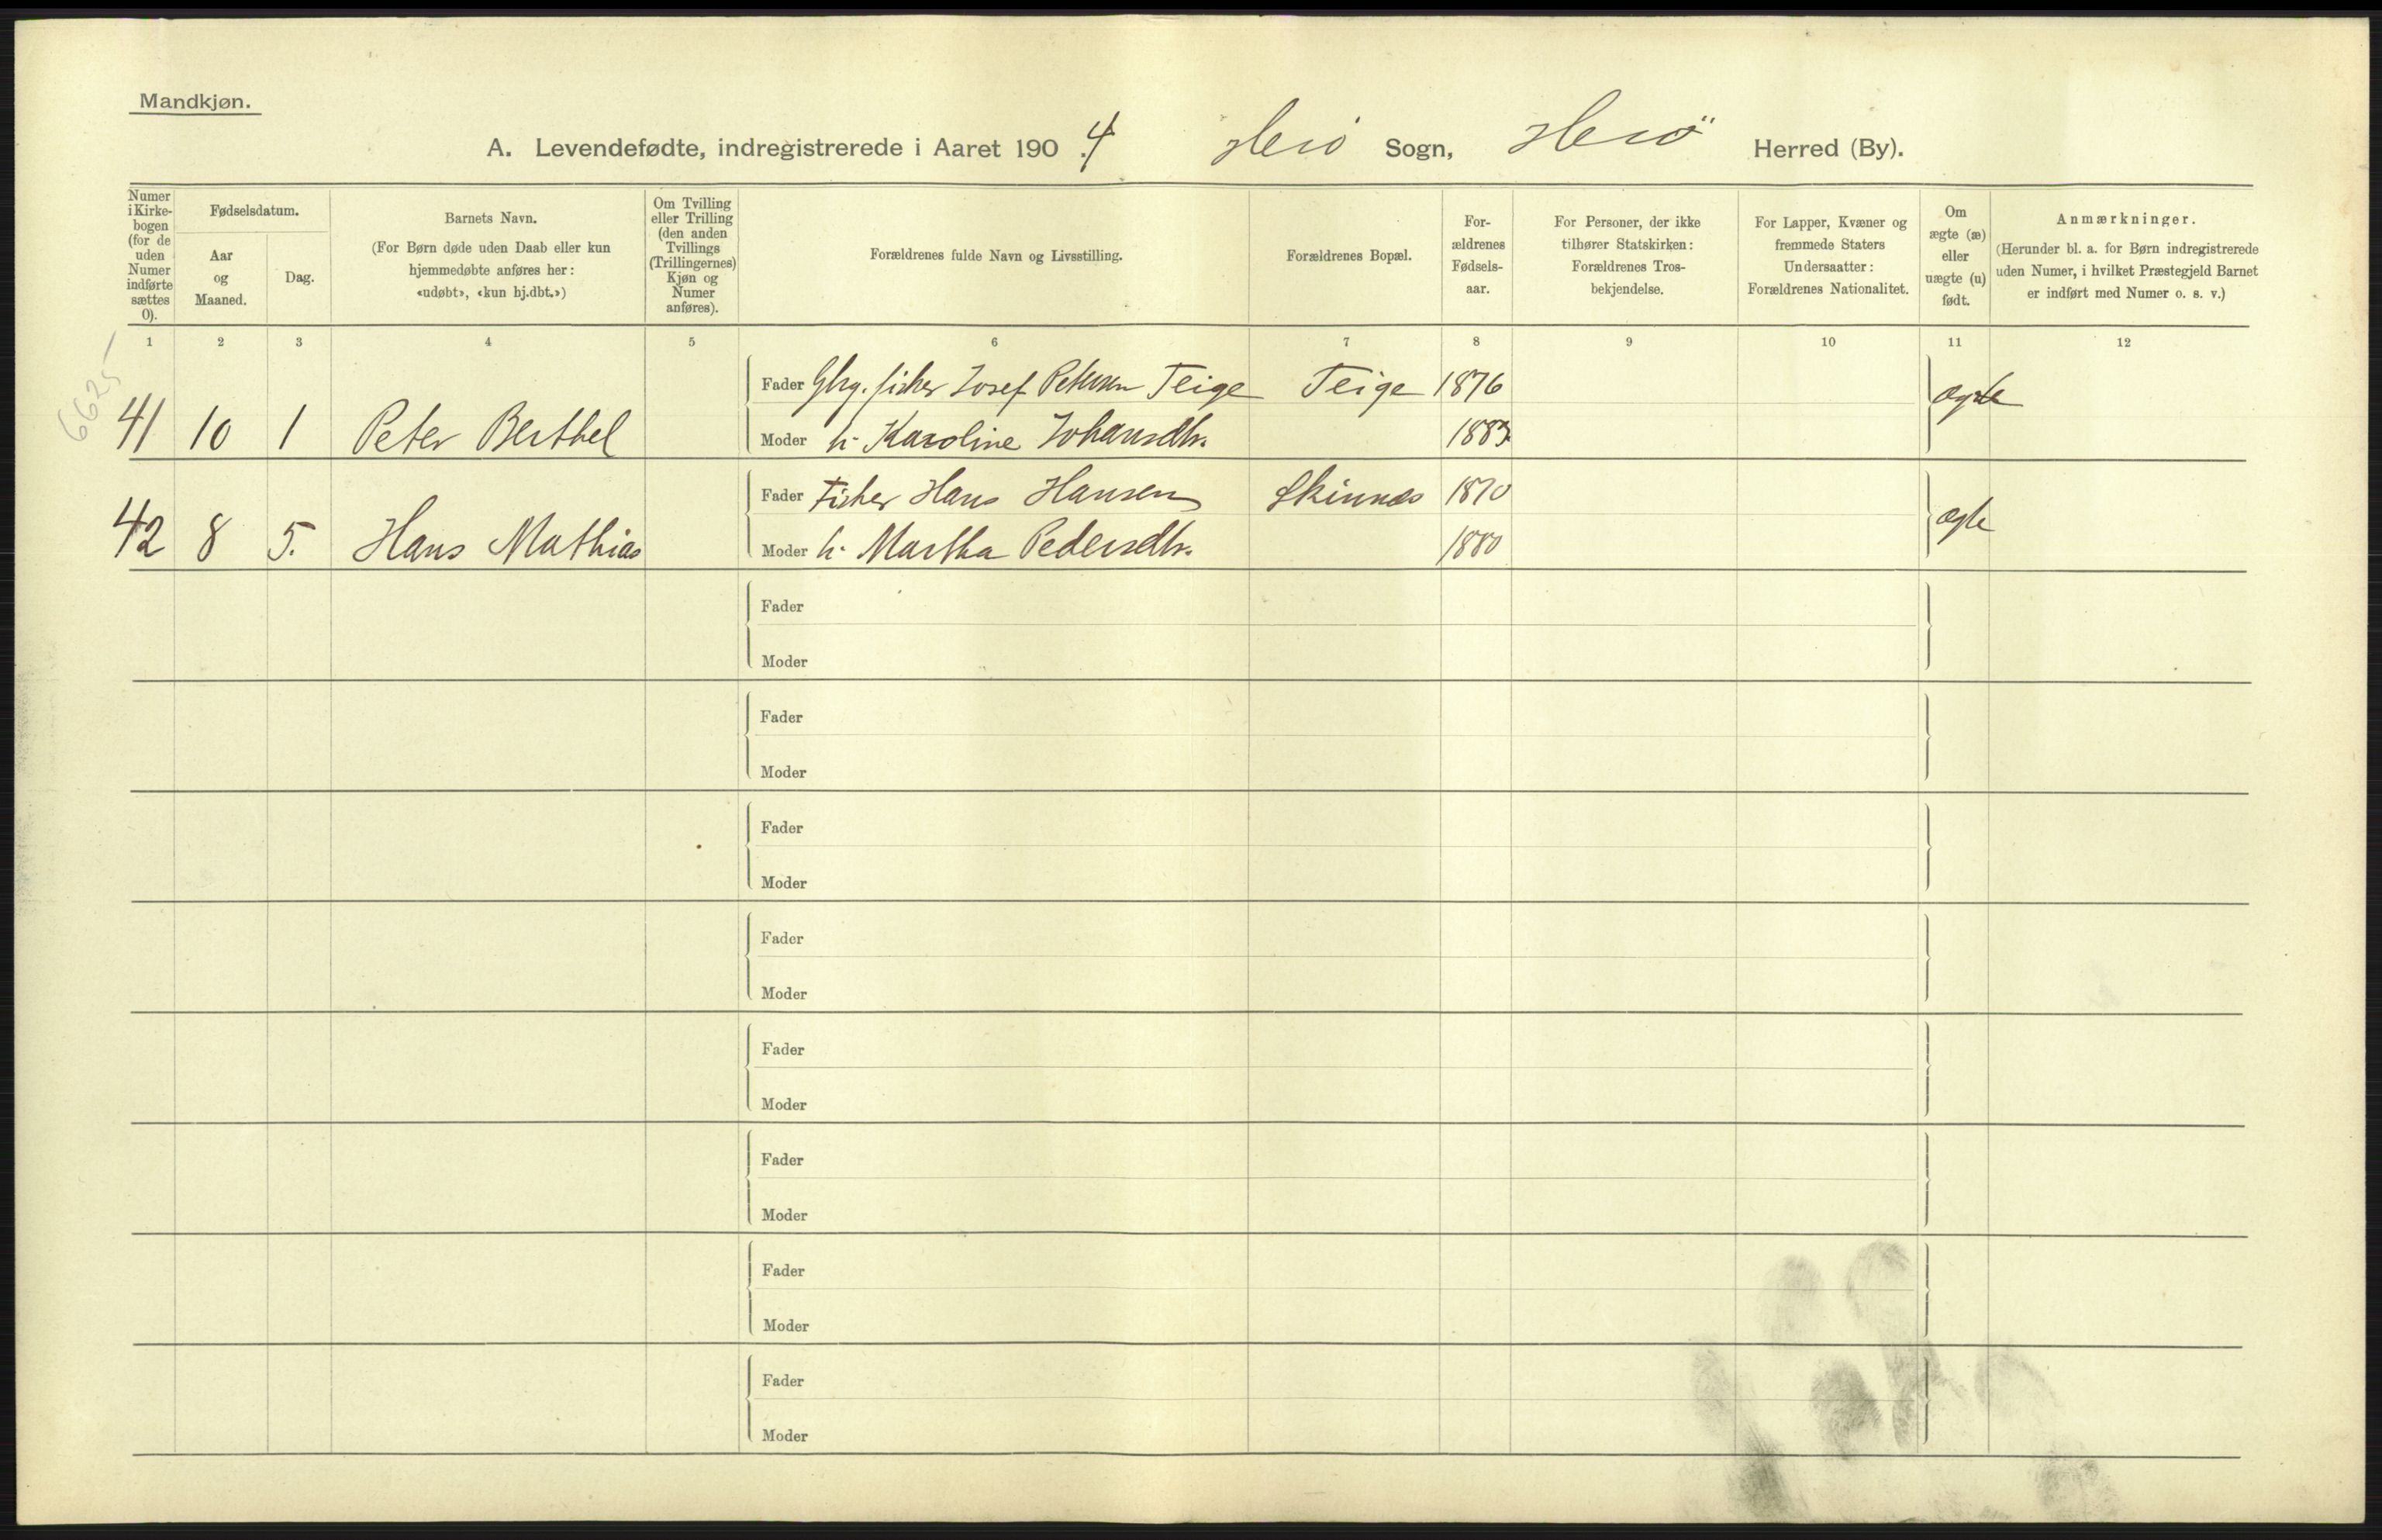 Mandkjøn.
A. Levendefødte, indregistrerede i Aaret 1904 Herö Sogn, Herö Herred (By).
Numer i Kirkebogen (for de uden Numer indførte sættes 0).
Fødselsdatum.
Aar og Maaned.
Dag.
Barnets Navn.
(For Børn døde uden Daab eller kun hjemmedøbte anføres her: «udøbt», «kun hj.dbt.»)
Om Tvilling eller Trilling (den anden Tvillings (Trillingernes) Kjøn og Numer anføres).
Forældrenes fulde Navn og Livsstilling.
Forældrenes Bopæl.
Forældrenes Fødselsaar.
For Personer, der ikke tilhører Statskirken: Forældrenes Trosbekjendelse.
For Lapper, Kvæner og fremmede Staters Undersaatter: Forældrenes Nationalitet.
Om ægte (æ) eller uægte (u) født.
Anmærkninger.
(Herunder bl. a. for Børn indregistrerede uden Numer, i hvilket Præstegjeld Barnet er indført med Numer o. s. v.)
1 2 3 4 5 6 7 8 9 10 11 12
6625
Fader Gbrg. fisker Josef Petersen Teige Teige 1876 ægte
41 10 1 Peter Berthel Moder h. Karoline Johansdtr. 1883
Fader Fisker Hans Hansen Skinnes 1870 ægte
42 8 5. Hans Mathias Moder h. Martha Pedersdtr. 1880
Fader
Moder
Fader
Moder
Fader
Moder
Fader
Moder
Fader
Moder
Fader
Moder
Fader
Moder
Fader
Moder